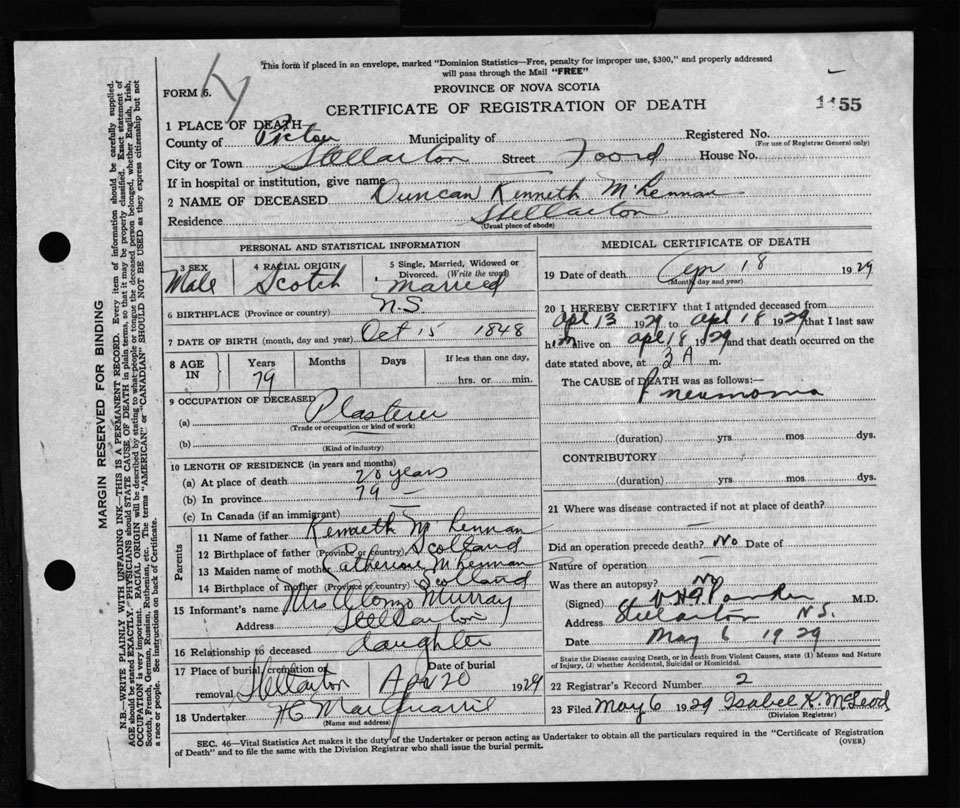 This form if placed in an envelope, marked "Dominion Statistics—Free, penalty for improper use, $300," and properly addressed
will pass through the Mail "FREE"
FORM 6.
PROVINCE OF NOVA SCOTIA
CERTIFICATE OF REGISTRATION OF DEATH
1155
1 PLACE OF DEATH—
County of Pictou Municipality of Registered No.
(For use of Registrar General only)
City or Town Stellarton Street Foord House No.
If in hospital or institution, give name
2 NAME OF DECEASED Duncan Kenneth McLennan
Residence Stellarton
(Usual place of abode)
PERSONAL AND STATISTICAL INFORMATION
3 SEX 4 RACIAL ORIGIN 5 Single, Married, Widowed or
Divorced. (Write the word)
Male Scotch Married
6 BIRTHPLACE (Province or country) N.S.
7 DATE OF BIRTH (month, day and year) Oct 15 1848
8 AGE IN Years Months Days If less than one day,
79 hrs. or min.
9 OCCUPATION OF DECEASED
(a) Plasterer
(Trade or occupation or kind of work)
(b)
(Kind of industry)
10 LENGTH OF RESIDENCE (in years and months)
(a) At place of death 20 years
(b) In province 79 —
(c) In Canada (if an immigrant)
Parents
11 Name of father Kenneth McLennan
12 Birthplace of father (Province or country) Scotland
13 Maiden name of mother Catherine McLennan
14 Birthplace of mother (Province or country) Scotland
15 Informant's name Mrs Alonzo Murray
Address Stellarton
16 Relationship to deceased daughter
17 Place of burial, cremation or Date of burial
removal Stellarton Apr 20 1929
18 Undertaker
(Name and address)
MEDICAL CERTIFICATE OF DEATH
19 Date of death Apr 18 1929
(Month, day and year)
20 I HEREBY CERTIFY that I attended deceased from
Apl 13 1929 to Apl 18 1929 that I last saw
him alive on Apl 18 1929 and that death occurred on the
date stated above, at 3 A m.
The CAUSE of DEATH was as follows:—
Pneumonia
(duration) yrs mos dys.
CONTRIBUTORY
(duration) yrs. mos. dys.
21 Where was disease contracted if not at place of death?
—
Did an operation precede death? No Date of
Nature of operation —
Was there an autopsy? No
(Signed) M.D.
Address Stellarton N.S.
Date May 6 1929
State the Disease causing Death, or in death from Violent Causes, state (1) Means and Nature
of Injury, (2) whether Accidental, Suicidal or Homicidal.
22 Registrar's Record Number 2
23 Filed May 6 1929 Isabel K. McLeod
(Division Registrar)
SEC. 46—Vital Statistics Act makes it the duty of the Undertaker or person acting as Undertaker to obtain all the particulars required in the "Certificate of Registration
of Death" and to file the same with the Division Registrar who shall issue the burial permit. (OVER)
MARGIN RESERVED FOR BINDING
N.B.—WRITE PLAINLY WITH UNFADING INK—THIS IS A PERMANENT RECORD. Every item of information should be carefully supplied.
AGE should be stated EXACTLY. PHYSICIANS should STATE CAUSE OF DEATH in plain terms, so that it may be properly classified. Exact statement of
OCCUPATION is very important. RACIAL ORIGIN will be described by stating to what people or tongue the deceased person belonged, whether English, Irish,
Scotch, French, German, Russian, Ruthenian, etc. The terms "AMERICAN" or "CANADIAN" SHOULD NOT BE USED as they express citizenship but not
a race or people. See instructions on back of Certificate.